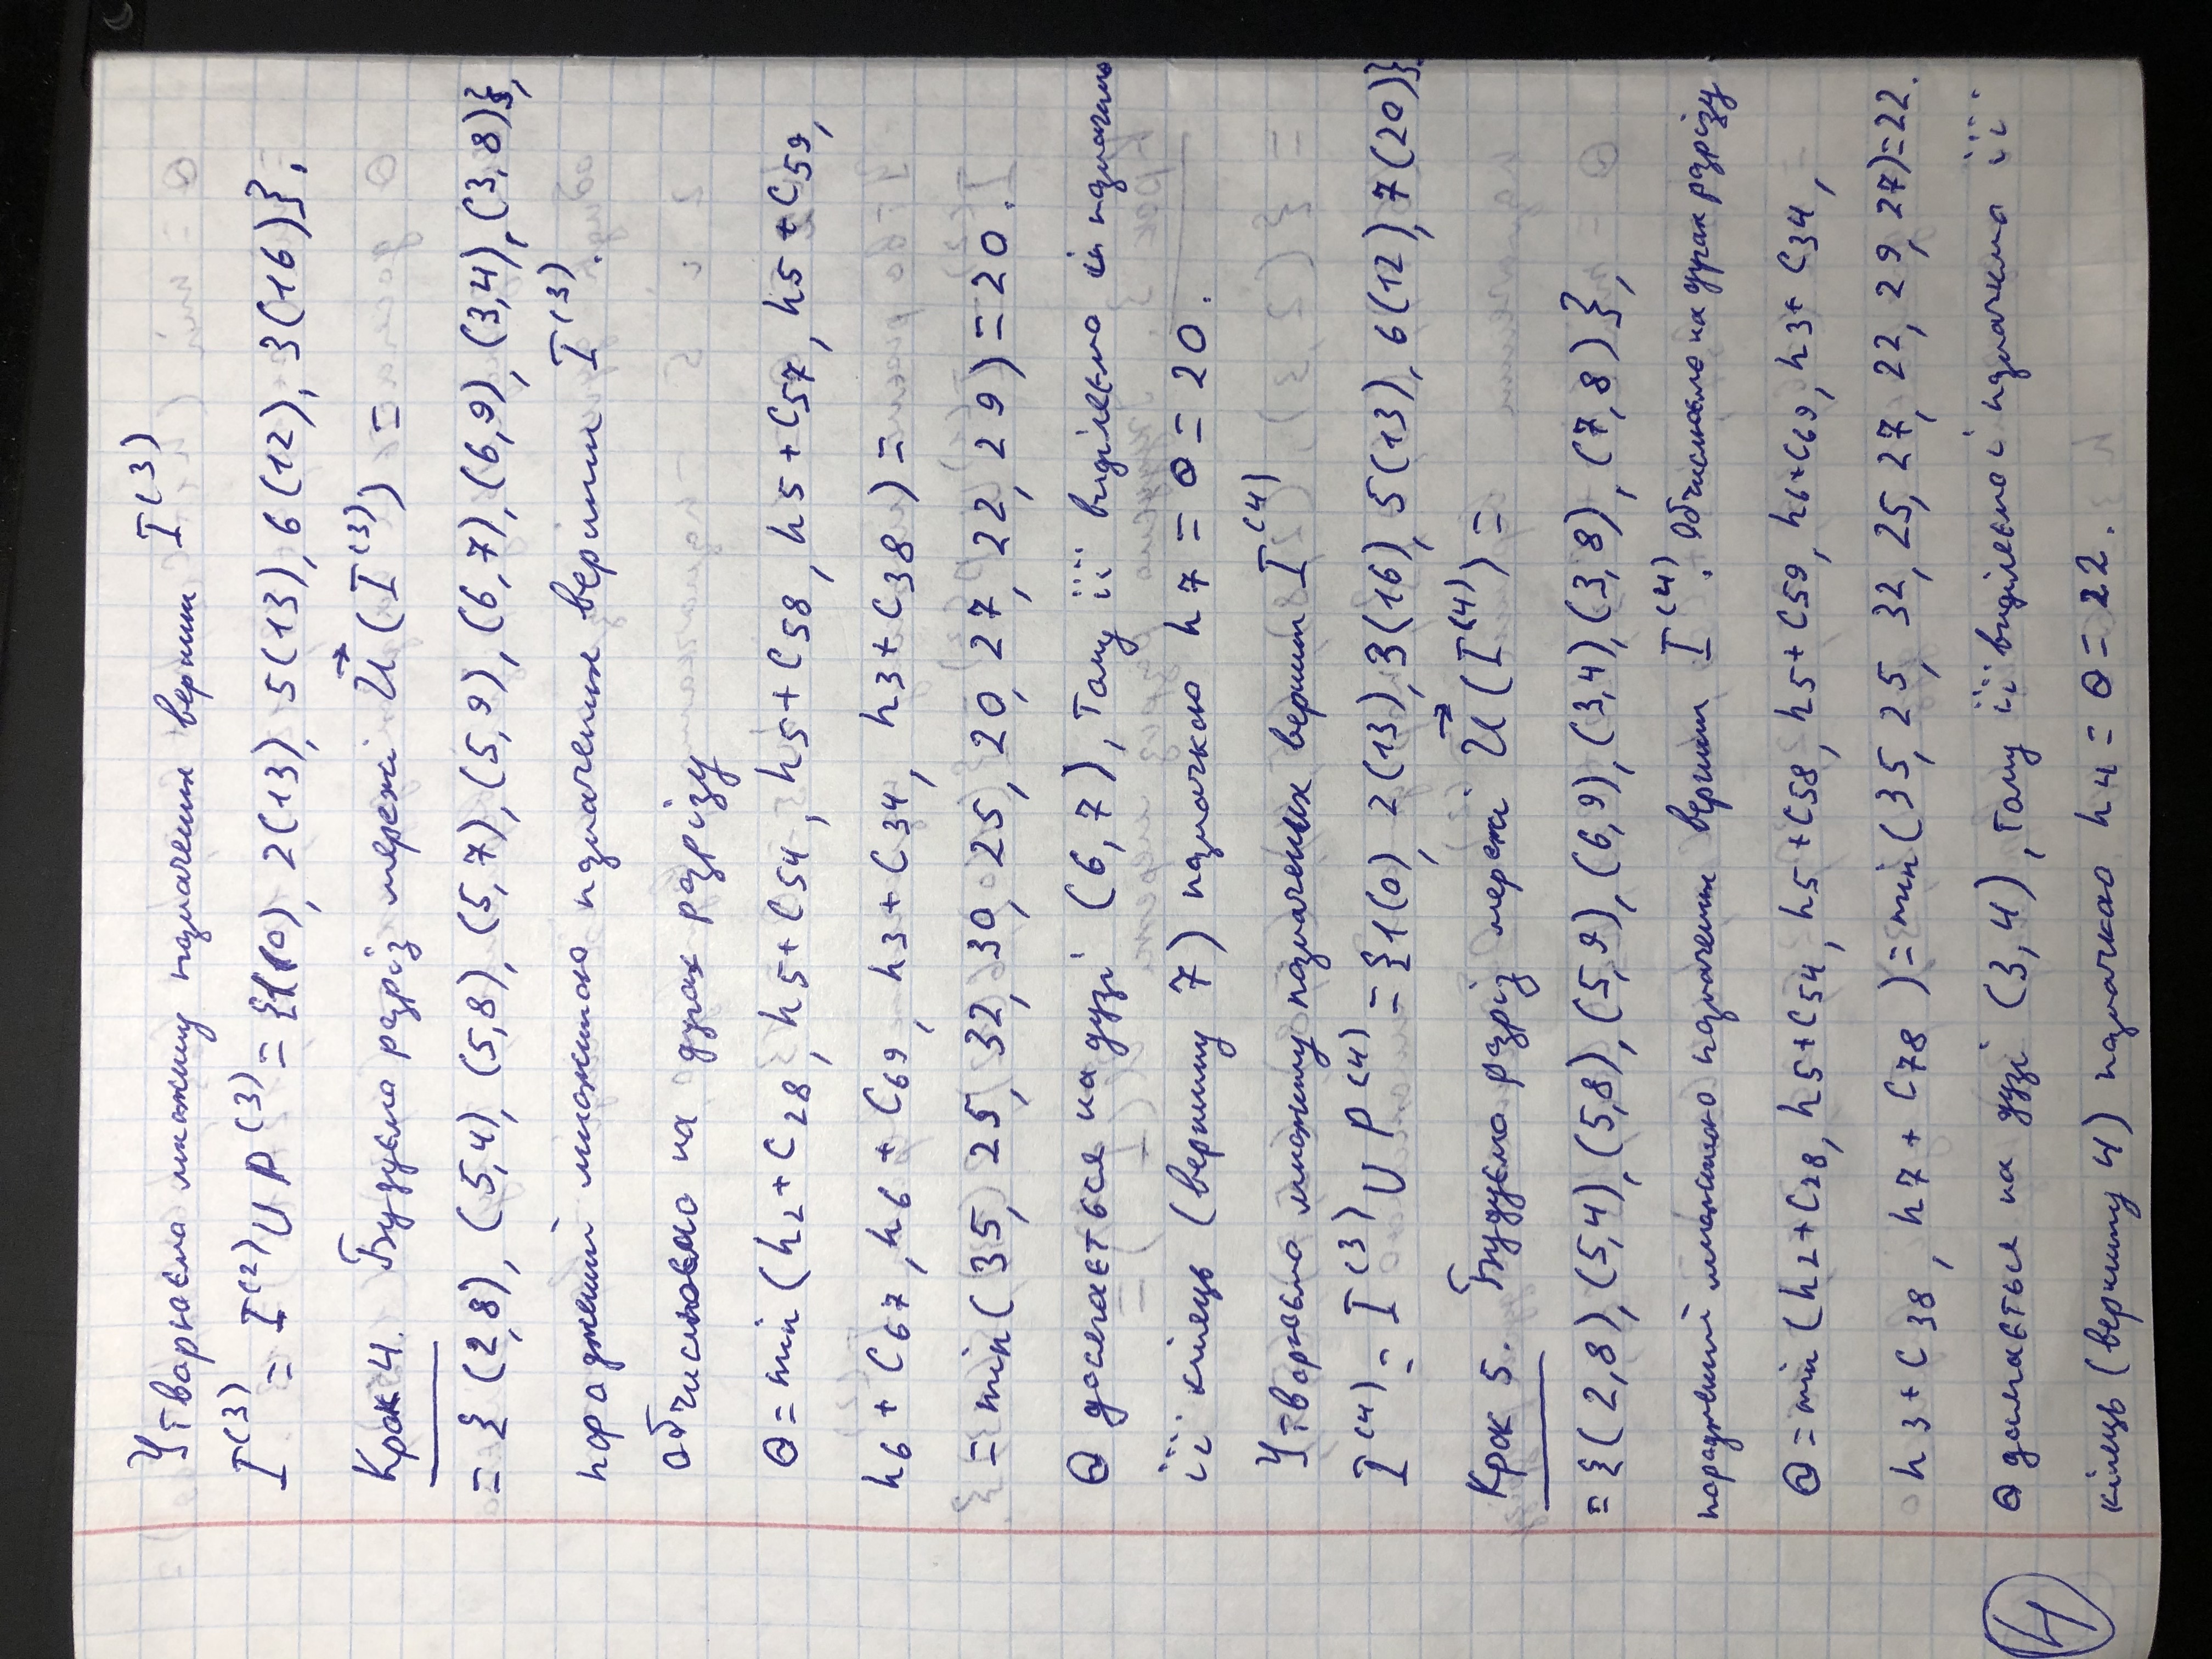 Утворюємо множину позначених вершин I^(3)
I^(3) = I^(2) ∪ P^(3) = {1(0), 2(13), 5(13), 6(12), 3(16)}.
Крок 4. Будуємо розріз мережі U⃗(I^(3)) =
= {(2,8), (5,4), (5,8), (5,7), (5,9), (6,7), (6,9), (3,4), (3,8)},
породжений множиною позначених вершин I^(3).
Обчислюємо на дугах розрізу
Θ = min(h₂+C₂₈, h₅+C₅₄, h₅+C₅₈, h₅+C₅₇, h₅+C₅₉,
h₆+C₆₇, h₆+C₆₉, h₃+C₃₄, h₃+C₃₈) =
= min(35, 25, 32, 30, 25, 20, 27, 22, 29) = 20.
Θ досягається на дузі (6,7), тому її виділяємо і позначимо
її кінець (вершину 7) позначкою h₇ = Θ = 20.
Утворюємо множину позначених вершин I^(4)
I^(4) = I^(3) ∪ P^(4) = {1(0), 2(13), 3(16), 5(13), 6(12), 7(20)}.
Крок 5. Будуємо розріз мережі U⃗(I^(4)) =
= {(2,8), (5,4), (5,8), (5,9), (6,9), (3,4), (3,8), (7,8)},
породжений множиною позначених вершин I^(4). Обчислюємо на дугах розрізу
Θ = min(h₂+C₂₈, h₅+C₅₄, h₅+C₅₈, h₅+C₅₉, h₆+C₆₉, h₃+C₃₄,
h₃+C₃₈, h₇+C₇₈) = min(35, 25, 32, 25, 27, 22, 29, 27) = 22.
Θ досягається на дузі (3,4), тому її виділяємо і позначимо її
кінець (вершину 4) позначкою h₄ = Θ = 22.
4